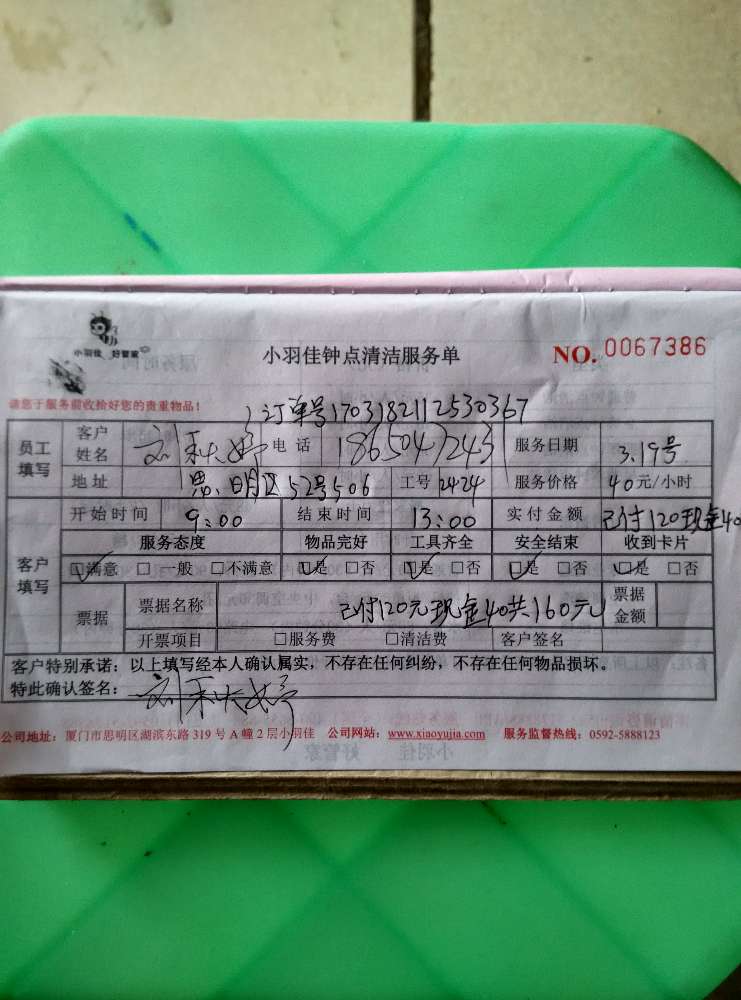 小羽佳 好管家
小羽佳钟点清洁服务单
NO. 0067386
请您于服务前收拾好您的贵重物品!
订单号1703182112530367
员工填写 客户姓名 刘秋婷 电话 服务日期 3.19号
地址 思明区52号506 工号 2424 服务价格 40元/小时
开始时间 9:00 结束时间 13:00 实付金额 已付120现金40
客户填写 服务态度 物品完好 工具齐全 安全结束 收到卡片
☑满意 □一般 □不满意 ☑是 □否 ☑是 □否 ☑是 □否 ☑是 □否
票据 票据名称 已付120元现金40共160元 票据金额
开票项目 □服务费 □清洁费 客户签名
客户特别承诺：以上填写经本人确认属实，不存在任何纠纷，不存在任何物品损坏。
特此确认签名：刘秋婷
公司地址：厦门市思明区湖滨东路 319 号 A 幢 2 层小羽佳 公司网站：www.xiaoyujia.com 服务监督热线：0592-5888123